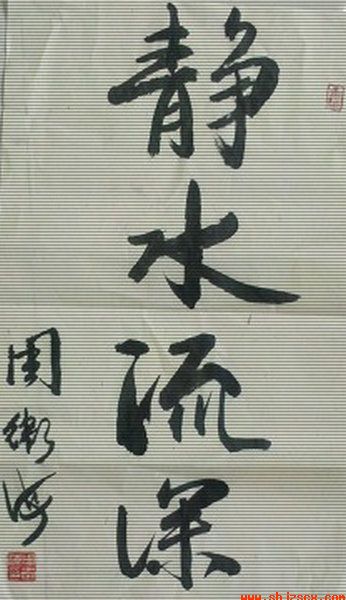 静水流深
周衛海
www.shjzscx.com